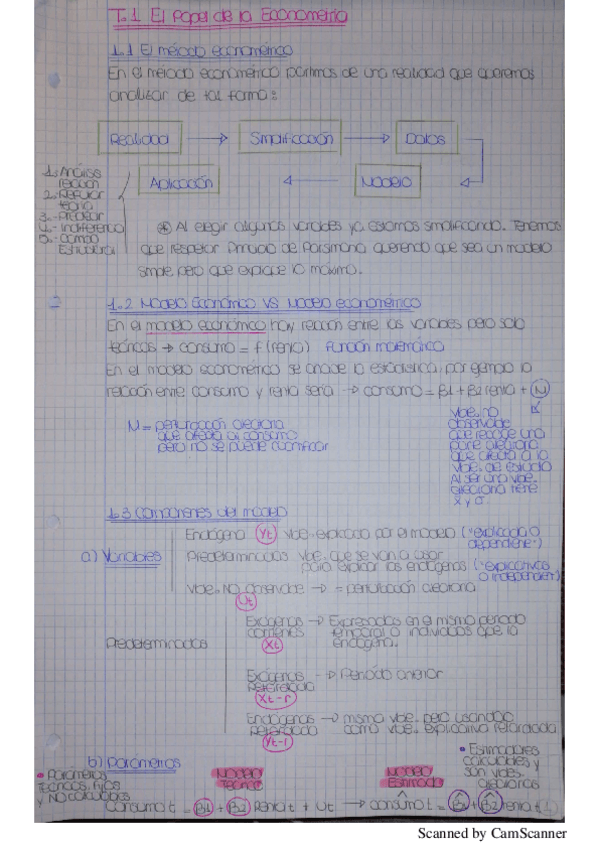 T.1 El Papel de la Econometría
1.1 El método econométrico
En el método econométrico partimos de una realidad que queremos
analizar de tal forma:
Realidad → Simplificación → Datos
Aplicación ← Modelo
1.- Análisis
relación
2.- Refutar
teoría
3.- Predecir
4.- Indiferencia
5.- Cambio
Estructural
* Al elegir algunas variables ya estamos simplificando. Tenemos
que respetar Principio de Parsimonia queriendo que sea un modelo
simple pero que explique lo máximo.
1.2 Modelo Económico VS Modelo econométrico
En el modelo económico hay relación entre las variables pero solo
teóricas → consumo = f (renta) Función matemática
En el modelo econométrico se añade la estadística, por ejemplo la
relación entre consumo y renta sería → consumo = β1 + β2 renta + N
N = perturbación aleatoria
que afecta al consumo
pero no se puede cuantificar
vble. no
observable
que recoge una
parte aleatoria
que afecta a la
vble. de estudio
Al ser una vble.
aleatoria tiene
x y σ.
1.3 Componentes del modelo
a) Variables
Endógena Yt vble. explicada por el modelo ("explicada o
dependiente")
Predeterminadas vble. que se van a usar
para explicar las endógenas ("explicativas
o independientes")
Vble. NO observable → = perturbación aleatoria
Ut
Predeterminadas
Exógenas → Expresadas en el mismo período
corrientes temporal o individuos que la
Xt endógena.
Exógenas → Período anterior
Retardada
Xt-r
Endógenas → misma vble. pero usándola
Retardada como vble. explicativa retardada
Yt-r
b) Parámetros
• Parámetros
Teóricos, fijos
y NO calculables
Modelo
Teórico
Modelo
Estimado
• Estimadores
calculables y
son vbles.
aleatorias
Consumo t = β1 + β2 Renta t + Ut → consumo t = β̂1 + β̂2 renta t
Scanned by CamScanner